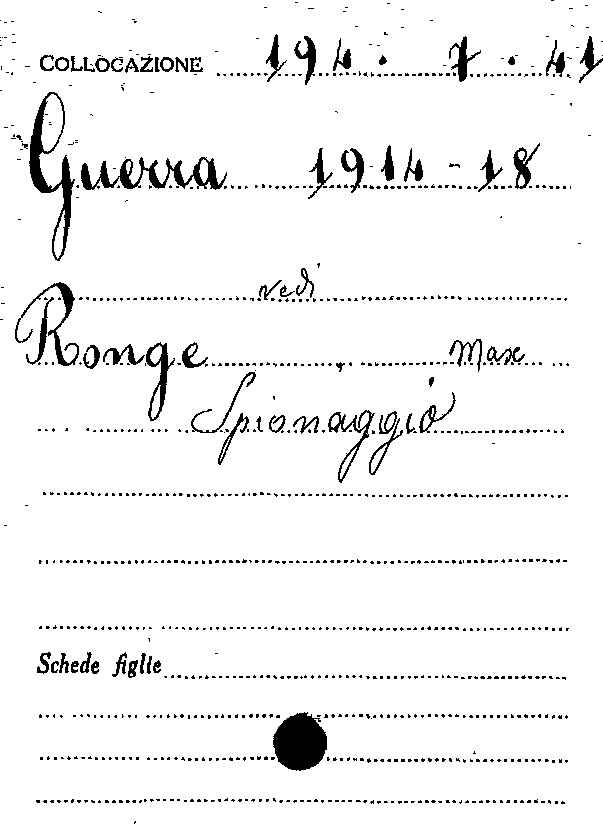 COLLOCAZIONE 194. 7. 41
Guerra 1914-18
vedi
Ronge, Max
Spionaggio
Schede figlie